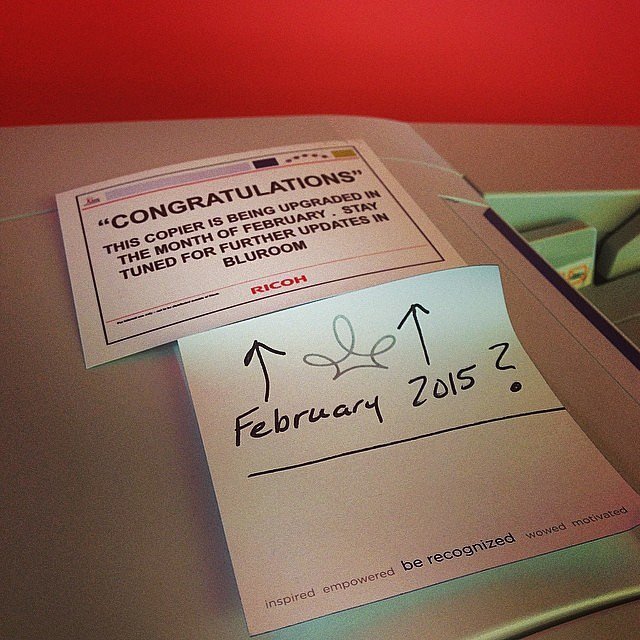 "CONGRATULATIONS"
THIS COPIER IS BEING UPGRADED IN
THE MONTH OF FEBRUARY . STAY
TUNED FOR FURTHER UPDATES IN
BLUROOM
RICOH
February 2015?
inspired empowered be recognized wowed motivated